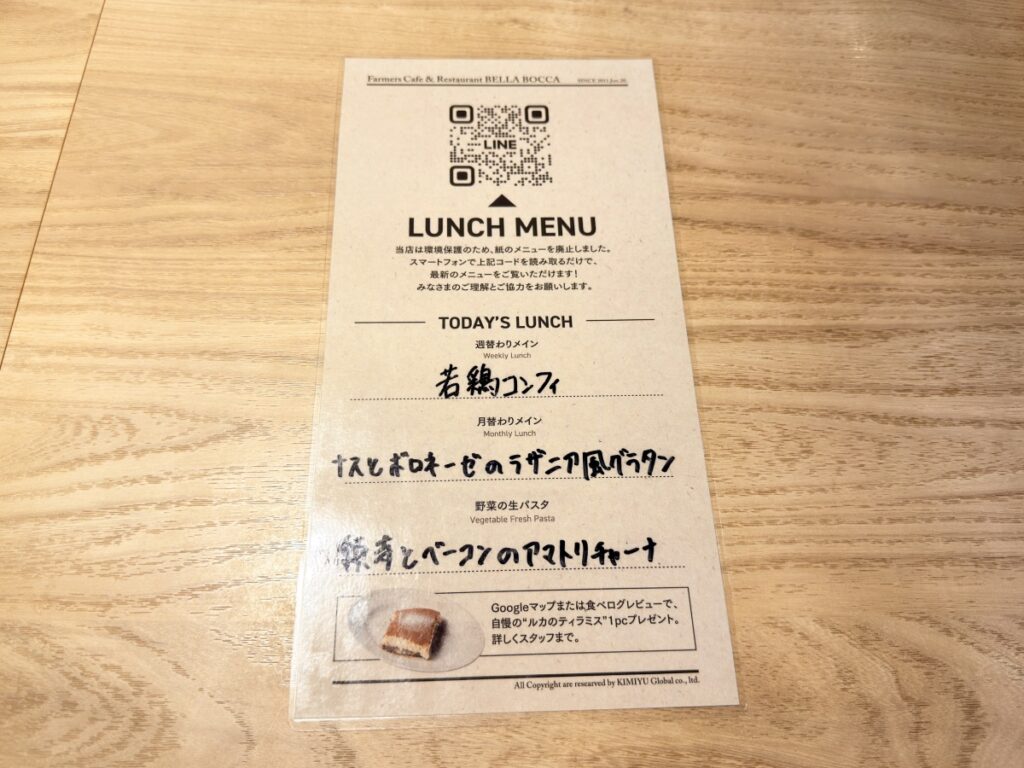 Farmers Cafe & Restaurant BELLA BOCCA SINCE 2011 Jun.20
LINE
LUNCH MENU
当店は環境保護のため、紙のメニューを廃止しました。
スマートフォンで上記コードを読み取るだけで、
最新のメニューをご覧いただけます!
みなさまのご理解とご協力をお願いします。
TODAY'S LUNCH
週替わりメイン
Weekly Lunch
若鶏コンフィ
月替わりメイン
Monthly Lunch
ナスとボロネーゼのラザニア風グラタン
野菜の生パスタ
Vegetable Fresh Pasta
とベーコンのアマトリチャーナ
Googleマップまたは食べログレビューで、
自慢の"ルカのティラミス"1pcプレゼント。
詳しくスタッフまで。
All Copyright are researved by KIMIYU Global co., ltd.